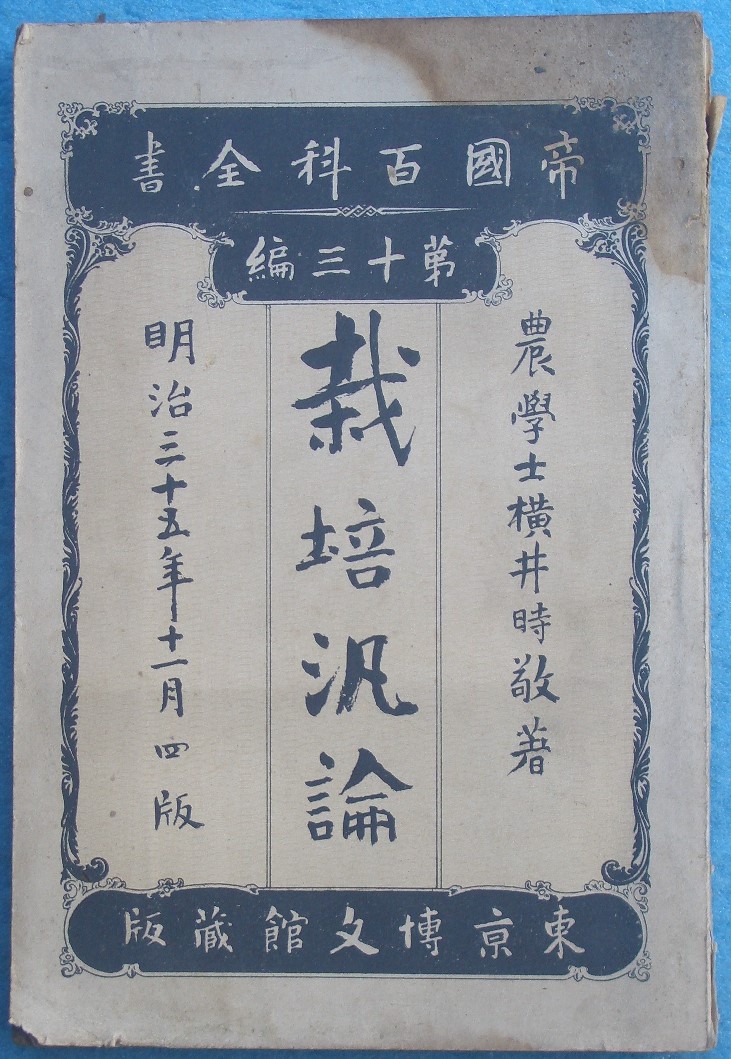 帝國百科全書
第十三編
農學士横井時敬著
栽培汎論
明治三十五年十一月四版
東京博文館藏版